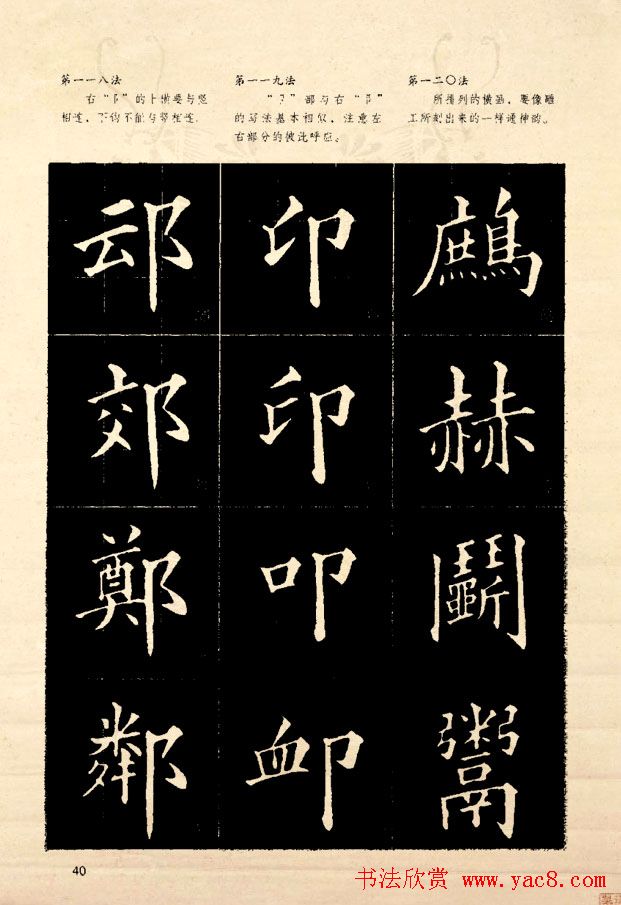 第一一八法
右“阝”的上横要与竖
相连，下钩不能与竖相连。
第一一九法
“卩”部与右“阝”
的写法基本相似，注意左
右部分的彼此呼应。
第一二〇法
所排列的横画，要像雕
工所刻出来的一样通神韵。
䢵 印 鷓
郊 印 赫
鄭 叩 鬭
鄰 卹 鬻
40
书法欣赏 www.yac8.com